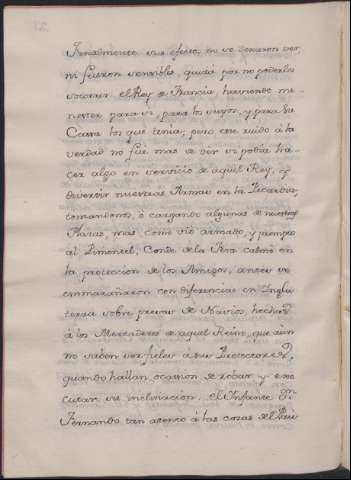 Finalmente su efeto, no se dexaron ver,
ni fueron sensibles, quizá por no poderlos
socorrer el Rey de Francia, haviendo me-
nester para si, para los suyos, y para su
Casa los que tenía; pero este ruido á la
verdad no fue mas de ver si podía ha-
cer algo en servicio de aquel Rey, y
divertir nuestras Armas en la Picardia,
tomandonos, ó cargando algunas de nuestras
Plazas, mas como vió armado, y prompto
al Pimentel, Conde de la calmó en
la proteccion de los Amigos, antes se
enmarañaron con diferencias en Ingla-
terra sobre presas de Navios, hechas
á los Mercaderes de aquel Reino, que aun
no saben ser fieles á sus Protectores,
quando hallan ocasion de robar y exe-
cutar su inclinacion. El Infante Dn
Fernando tan atento á las cosas del Pais